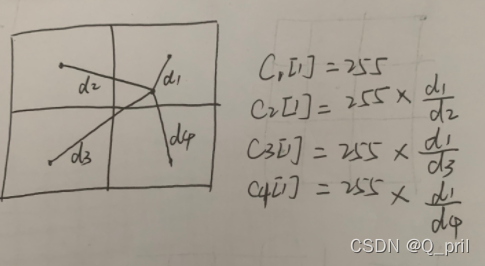 d1
d2
d3
d4
C1[1] = 255
C2[1] = 255 × d1/d2
C3[1] = 255 × d1/d3
C4[1] = 255 × d1/d4
CSDN @Q_pril